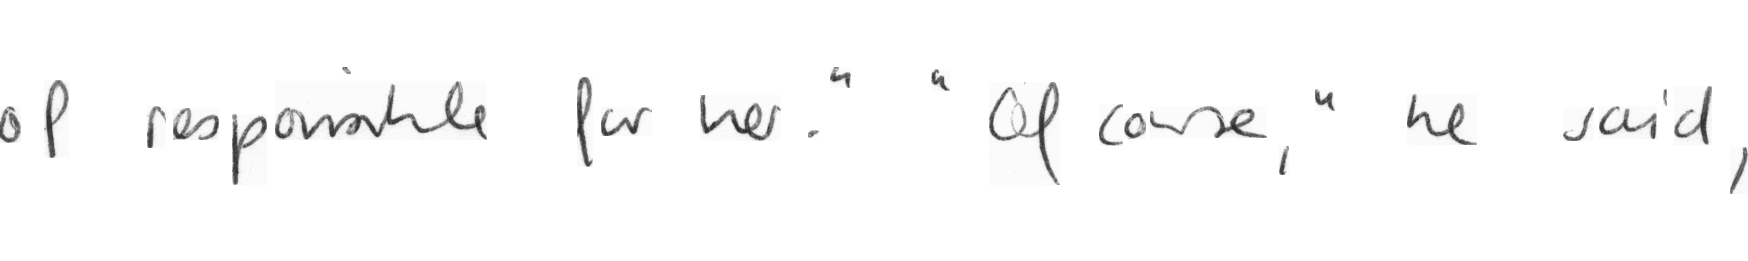 of responsible for her." "Of course," he said,